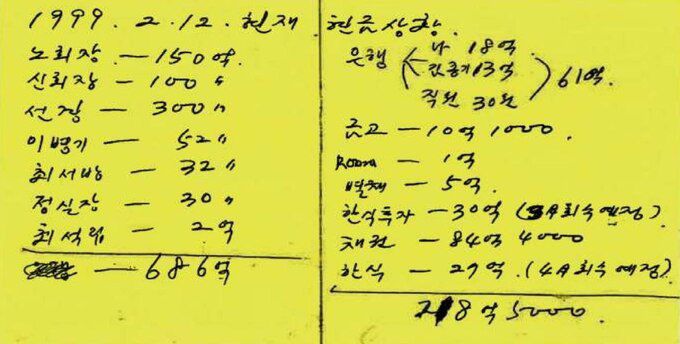 1999. 2. 12. 현재
노회장 — 150억.
신회장 — 100 〃
선경 — 300 〃
이병기 — 52 〃
최서방 — 32 〃
정실장 — 30 〃
최석림 — 2억
— 686억
현금상황.
은행 나 18억
13억
직원 30원
61억.
금고 — 10억 1000.
Room — 1억
별채 — 5억.
한식투자 — 30억 (회수예정)
채권 — 84억 4000
한식 — 29억. (4A 회수예정)
8억 5000.